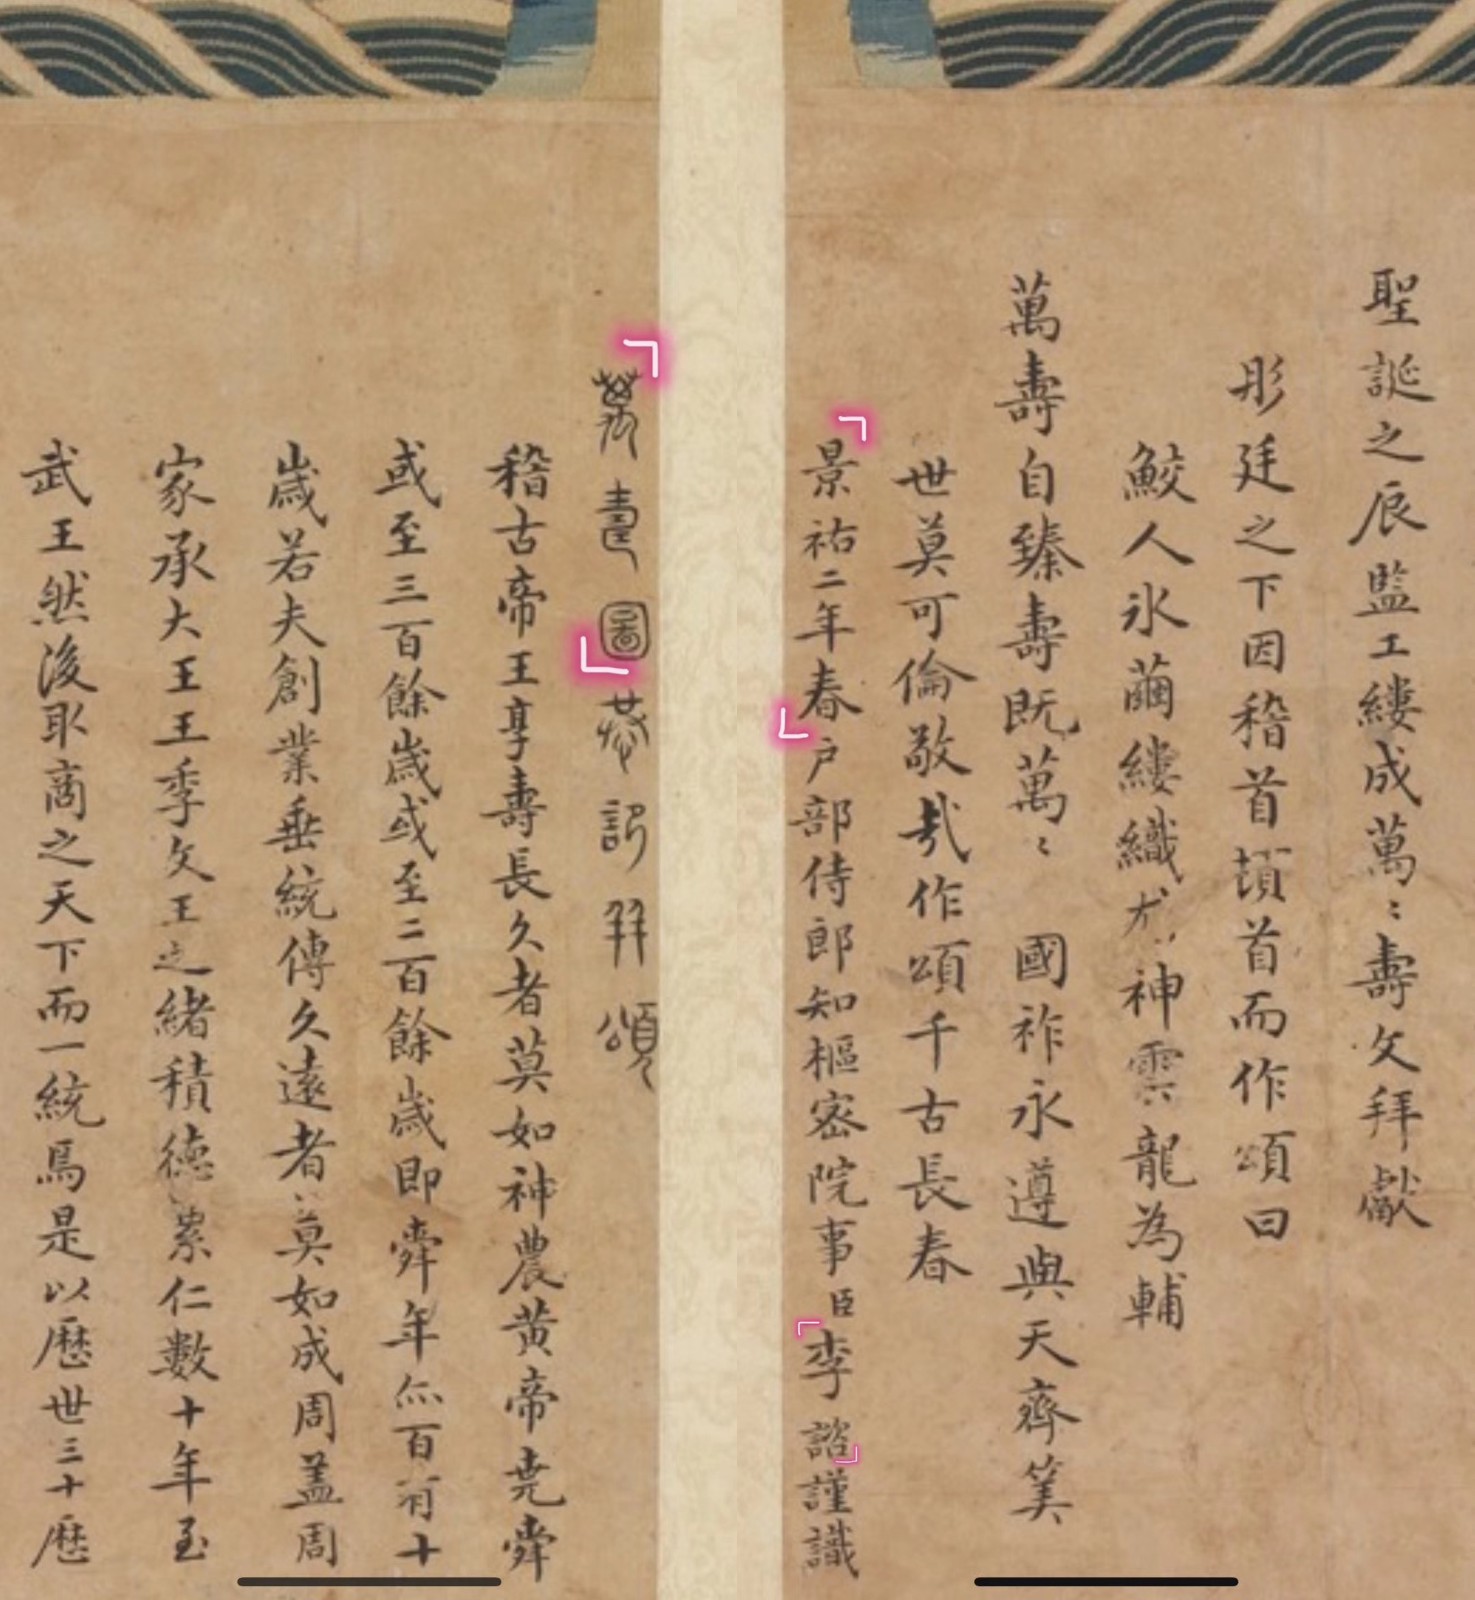 萬壽圖恭記拜頌
稽古帝王享壽長久者莫如神農黃帝堯舜
或至三百餘歲或至二百餘歲即舜年亦百有十
歲若夫創業垂統傳久遠者莫如成周盖周
家承大王王季文王之緒積德累仁數十年至
武王然後取商之天下而一統焉是以歷世三十歷
聖誕之辰監工縷成萬〻壽文拜獻
彤廷之下因稽首頓首而作頌曰
鮫人氷繭縷織尤神雲龍為輔
萬壽自臻壽既萬〻 國祚永遵與天齊筭
世莫可倫敬哉作頌千古長春
景祐二年春戶部侍郎知樞密院事臣李諮謹識